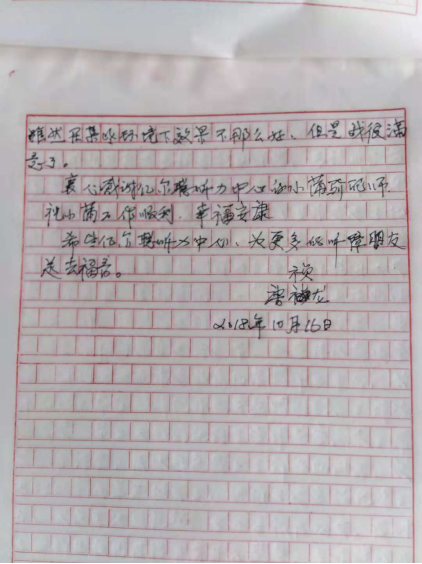 虽然在某些环境下效果不那么好、但是我很满
意了。
衷心感谢亿尔聪听力中心的小蒲验配师
祝小蒲工作顺利、幸福安康
希望亿尔聪听力中心、为更多的听障朋友
送去福音。
祯
曾祥龙
2018年10月16日